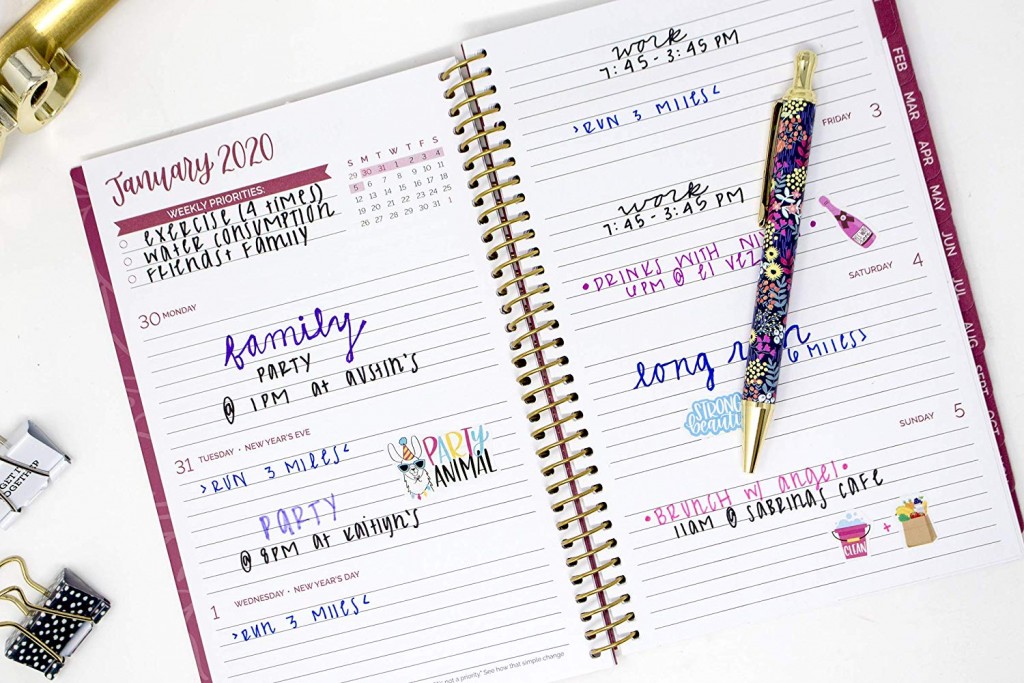 January 2020
WEEKLY PRIORITIES:
exercise (4 times)
water consumption
Friends + Family
S M T W T F S
29 30 31 1 2 3 4
5 6 7 8 9 10 11
12 13 14 15 16 17 18
19 20 21 22 23 24 25
26 27 28 29 30 31 1
30 MONDAY
family
PARTY
@ 1PM at AUSTIN'S
31 TUESDAY • NEW YEAR'S EVE
>RUN 3 MILES<
PARTY ANIMAL
PARTY
@ 8PM at Kaitlyn's
1 WEDNESDAY • NEW YEAR'S DAY
>RUN 3 MILES<
not a priority" See how that simple change
work
7:45 - 3:45 PM
>RUN 3 MILES<
FRIDAY 3
work
7:45 - 3:45 PM
•DRINKS WITH
6PM @ El
SATURDAY 4
long
6 MILES>
STRONG
SUNDAY 5
•BRUNCH W/ angel•
11AM @ SABRINAS CAFE
CLEAN
+
FEB
MAR
APR
MAY
JUN
JUL
AUG
SEPT
GET IT
TOGETHER